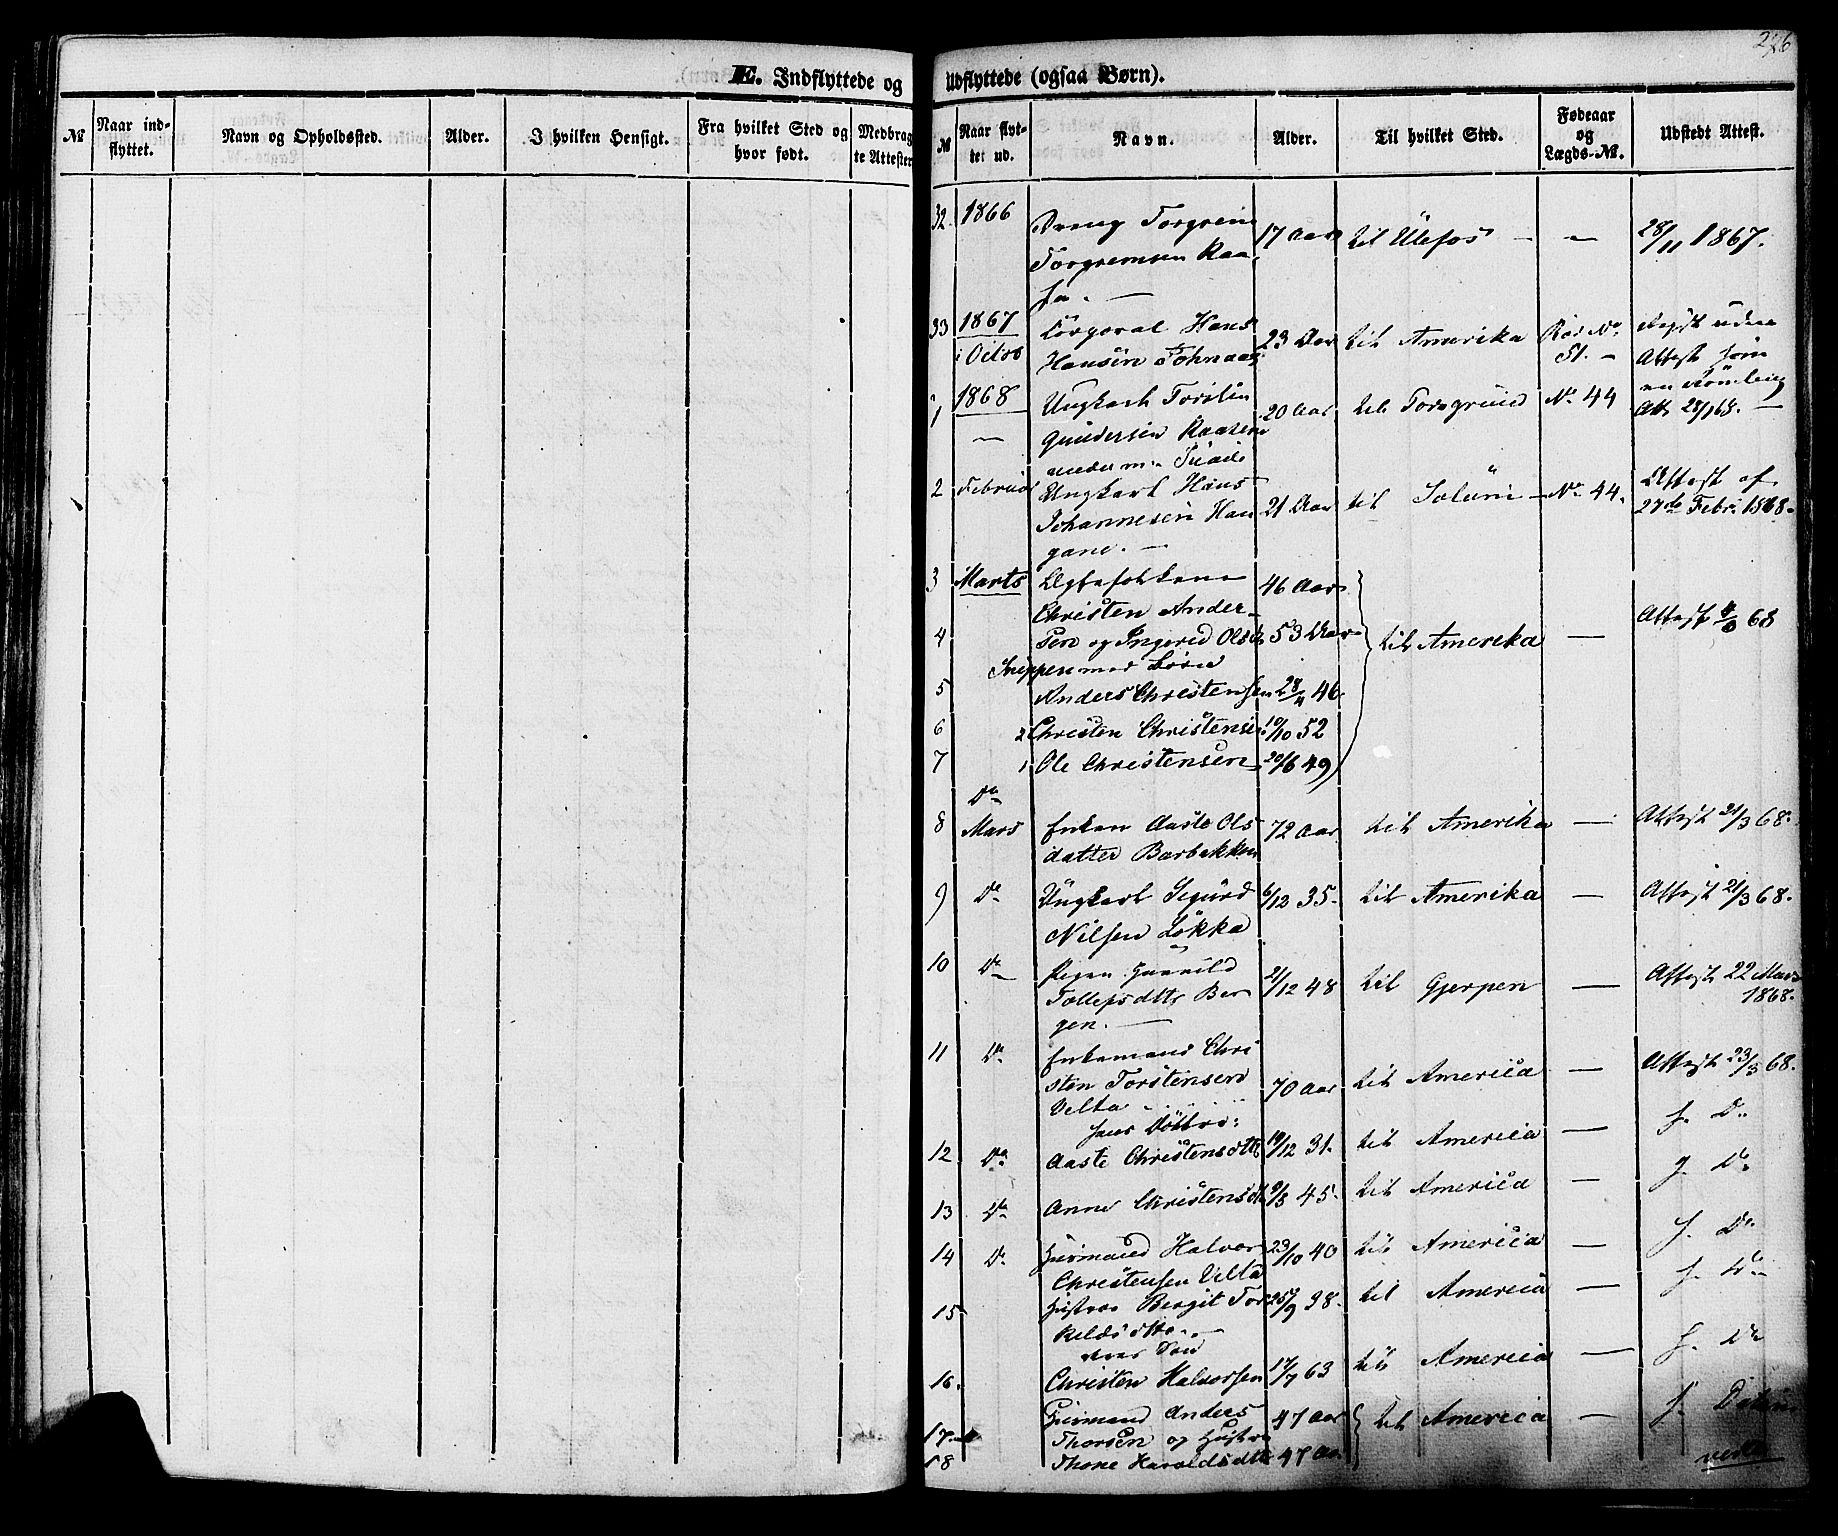 226
E. Indflyttede og
Udflyttede (ogsaa Børn).
№
Naar ind-
flyttet.
Navn og Opholdssted.
Alder.
I hvilken Hensigt.
Fra hvilket Sted og
hvor født.
Medbrag
te Attester
№
Naar flyt-
tet ud.
Navn.
Alder.
Til hvilket Sted.
Fødeaar
og
Lægds-№.
Udstedt Attest.
32. 1866 Dreng Torgrim 17 Aar til Ulefos — — 28/11 1867.
Torgrimsen Raa
sa. —
33 1867 Corporal Hans 23 Aar til Amerika No. Reist uden
i Octos Hansen 51. — Attest som
1868 Ungkarl Torsten 20 Aar til Porsgrund No. 44 en Rømling
1 — Gundersen Att. 28/1 68. —
2 Februar Ungkarl Hans 21 Aar til Solum — No. 44. Attest af
Johannesen Hau 27de Febr. 1868.
gane. —
3 Marts Ægtefolkene 46 Aar
Christen Ander-
4 sen og Ingerid Olsdtr 53 Aar til Amerika — Attest 68
med Børn
5 Anders Christensen 28/4 46.
6 2 Christen Christensen 10/10 52
7 1 Ole Christensen 20/6 49
Do
8 Mars Enken Aaste Ols 72 Aar til Amerika — Attest 21/3 68.
datter Barbakken
9 Do Ungkarl Sigurd 6/12 35. til Amerika — Attest 21/3 68.
Nilsen Løkka
10 Do Pigen Gunnild 21/12 48 til Gjerpen — Attest 22 Mars
Tollefsdtr Ber 1868.
gen. —
11 Do Enkemand Chri
sten Torstensen 70 Aar til America — Attest 23/3 68.
Velta
hans Døttre:
12 Do Aaste Christensdtr 19/12 31. til America — f. Do
13 Do Anne Christensdt 9/3 45. til America — f. Do
14 Do Huusmand Halvor 23/10 40 til America — f. Do
Christensen Velta
15. Hustro Bergit Tor 25/9 38. til America — f. Do
kildsdtr. —
deres Søn
16. Christen Halvorsen 17/7 63 til America — f. Do
Huusmand Anders 47 Aar til America — f.
17. Thorsen og Hustro
18 Thone Haroldsdtr 47 Aar